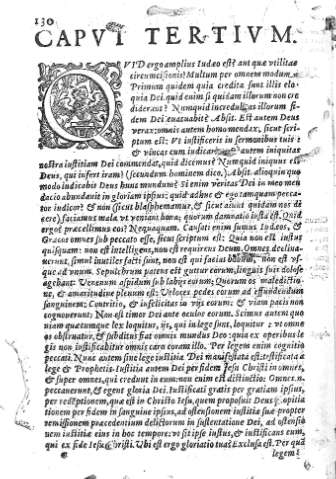 130
CAPVT TERTIVM.
QVID ergo amplius Iudæo est? aut quæ vtilitas
circumcisionis? Multum per omnem modum.
Primum quidem quia credita sunt illis elo-
quia Dei. quid enim si quidam illorum non cre
diderunt? Numquid incredulitas illorum fi-
dem Dei euacuabit? Absit. Est autem Deus
verax: omnis autem homo mendax, sicut scrip
tum est: Vt iustificeris in sermonibus tuis:
& vincas cum iudicaris. autem iniquitas
nostra iustitiam Dei commendat, quid dicemus? Numquid iniquus est
Deus, qui infert iram? (secundum hominem dico.) Absit. alioquin quo
modo iudicabit Deus hunc mundum? Si enim veritas Dei in meo men
dacio abundauit in gloriam ipsius: quid adhuc & ego tamquam pecca-
tor iudicor? & non (sicut blasphemamur, & sicut aiunt quidam nos di
cere) faciamus mala vt veniant bona: quorum damnatio iusta est. Quid
ergo? præcellimus eos? Nequaquam. Causati enim sumus Iudæos, &
Græcos omnes sub peccato esse, sicut scriptum est: Quia non est iustus
quisquam: non est intelligens, non est requirens Deum. Omnes declina-
uerunt, simul inutiles facti sunt, non est qui faciat bonum, non est vs-
que ad vnum. Sepulchrum patens est guttur eorum, linguis suis dolose
agebant. Venenum aspidum sub labijs eorum: Quorum os maledictio-
ne, & amaritudine plenum est: Veloces pedes eorum ad effundendum
sanguinem: Contritio, & infelicitas in vijs eorum: & viam pacis non
cognouerunt: Non est timor Dei ante oculos eorum. Scimus autem quo
niam quæcumque lex loquitur, ijs, qui in lege sunt, loquitur: vt omne
os obstruatur, & subditus fiat omnis mundus Deo: quia ex operibus le
gis non iustificabitur omnis caro coram illo. Per legem enim cognitio
peccati. Nunc autem sine lege iustitia Dei manifestata est: testificata a
lege & Prophetis. Iustitia autem Dei per fidem Iesu Christi in omnes,
& super omnes, qui credunt in eum: non enim est distinctio: Omnes n.
peccauerunt, & egent gloria Dei. Iustificati gratis per gratiam ipsius,
per redẽptionem, quæ est in Christo Iesu, quem proposuit Deus ꝓpitia
tionem per fidem in sanguine ipsius, ad ostensionem iustitiæ suæ propter
remissionem præcedentium delictorum in sustentatione Dei, ad ostensio
nem iustitiæ eius in hoc tempore: vt sit ipse iustus, & iustificans eum,
qui ex fide Iesu Christi. Vbi est ergo gloriatio tua? Exclusa est. Per quã
legem?